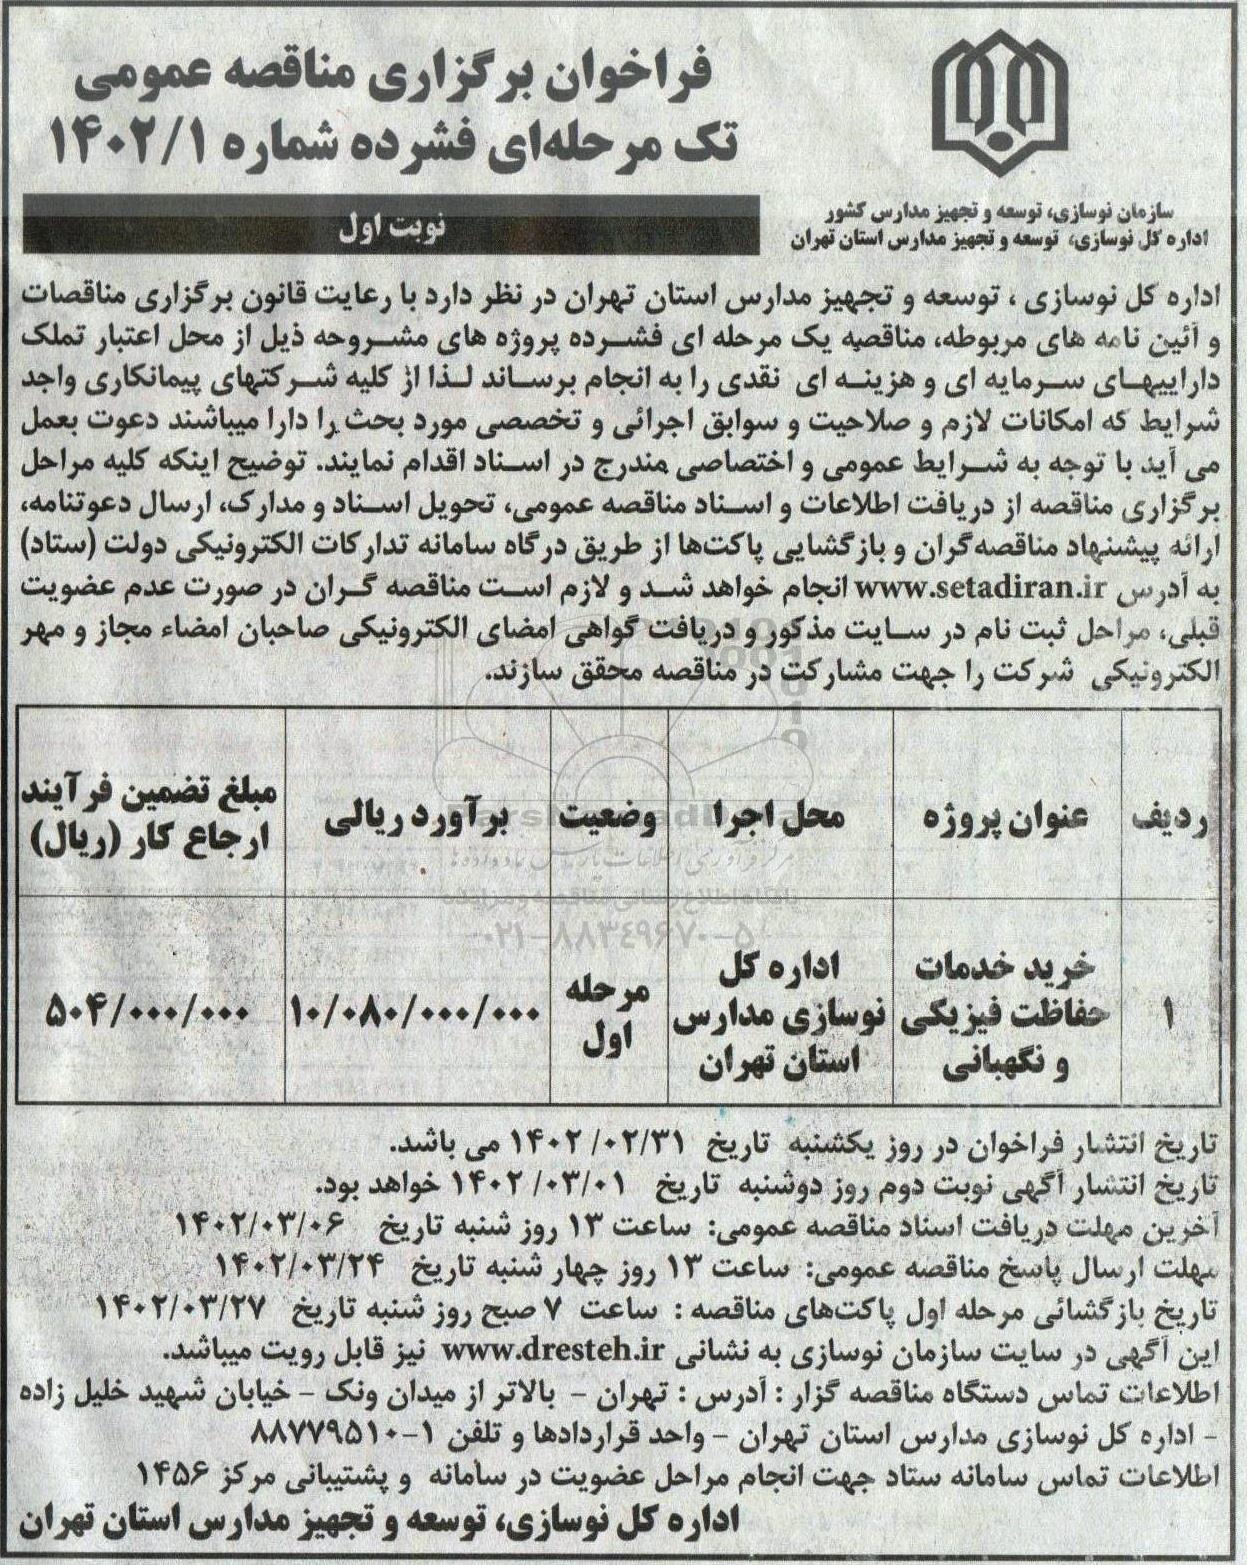 سازمان نوسازی، توسعه و تجهیز مدارس کشور
اداره کل نوسازی، توسعه و تجهیز مدارس استان تهران
فراخوان برگزاری مناقصه عمومی
تک مرحله‌ای فشرده شماره ۱۴۰۲/۱
نوبت اول
اداره کل نوسازی ، توسعه و تجهیز مدارس استان تهران در نظر دارد با رعایت قانون برگزاری مناقصات
و آئین نامه های مربوطه، مناقصه یک مرحله ای فشرده پروژه های مشروحه ذیل از محل اعتبار تملک
داراییهای سرمایه ای و هزینه ای نقدی را به انجام برساند لذا از کلیه شرکتهای پیمانکاری واجد
شرایط که امکانات لازم و صلاحیت و سوابق اجرائی و تخصصی مورد بحث را دارا میباشند دعوت بعمل
می آید با توجه به شرایط عمومی و اختصاصی مندرج در اسناد اقدام نمایند. توضیح اینکه کلیه مراحل
برگزاری مناقصه از دریافت اطلاعات و اسناد مناقصه عمومی، تحویل اسناد و مدارک، ارسال دعوتنامه،
ارائه پیشنهاد مناقصه‌گران و بازگشایی پاکت‌ها از طریق درگاه سامانه تدارکات الکترونیکی دولت (ستاد)
به آدرس www.setadiran.ir انجام خواهد شد و لازم است مناقصه گران در صورت عدم عضویت
قبلی، مراحل ثبت نام در سایت مذکور و دریافت گواهی امضای الکترونیکی صاحبان امضاء مجاز و مهر
الکترونیکی شرکت را جهت مشارکت در مناقصه محقق سازند.
ردیف عنوان پروژه محل اجرا وضعیت برآورد ریالی مبلغ تضمین فرآیند
ارجاع کار (ریال)
۱ خرید خدمات
حفاظت فیزیکی
و نگهبانی
اداره کل
نوسازی مدارس
استان تهران
مرحله
اول
۱۰/۰۸۰/۰۰۰/۰۰۰
۵۰۴/۰۰۰/۰۰۰
ParsNamadData
مرکز فرآوری اطلاعات پارس نماد داده‌ها
پایگاه اطلاع رسانی مناقصه و مزایده
۰۲۱-۸۸۳۴۹۶۷۰-۵
تاریخ انتشار فراخوان در روز یکشنبه تاریخ ۱۴۰۲/۰۲/۳۱ می باشد.
تاریخ انتشار آگهی نوبت دوم روز دوشنبه تاریخ ۱۴۰۲/۰۳/۰۱ خواهد بود.
آخرین مهلت دریافت اسناد مناقصه عمومی: ساعت ۱۳ روز شنبه تاریخ ۱۴۰۲/۰۳/۰۶
مهلت ارسال پاسخ مناقصه عمومی: ساعت ۱۳ روز چهار شنبه تاریخ ۱۴۰۲/۰۳/۲۴
تاریخ بازگشائی مرحله اول پاکت‌های مناقصه : ساعت ۷ صبح روز شنبه تاریخ ۱۴۰۲/۰۳/۲۷
این آگهی در سایت سازمان نوسازی به نشانی www.dresteh.ir نیز قابل رویت میباشد.
اطلاعات تماس دستگاه مناقصه گزار : آدرس : تهران - بالاتر از میدان ونک - خیابان شهید خلیل زاده
- اداره کل نوسازی مدارس استان تهران - واحد قراردادها و تلفن ۱-۸۸۷۷۹۵۱۰
اطلاعات تماس سامانه ستاد جهت انجام مراحل عضویت در سامانه و پشتیبانی مرکز ۱۴۵۶
اداره کل نوسازی، توسعه و تجهیز مدارس استان تهران